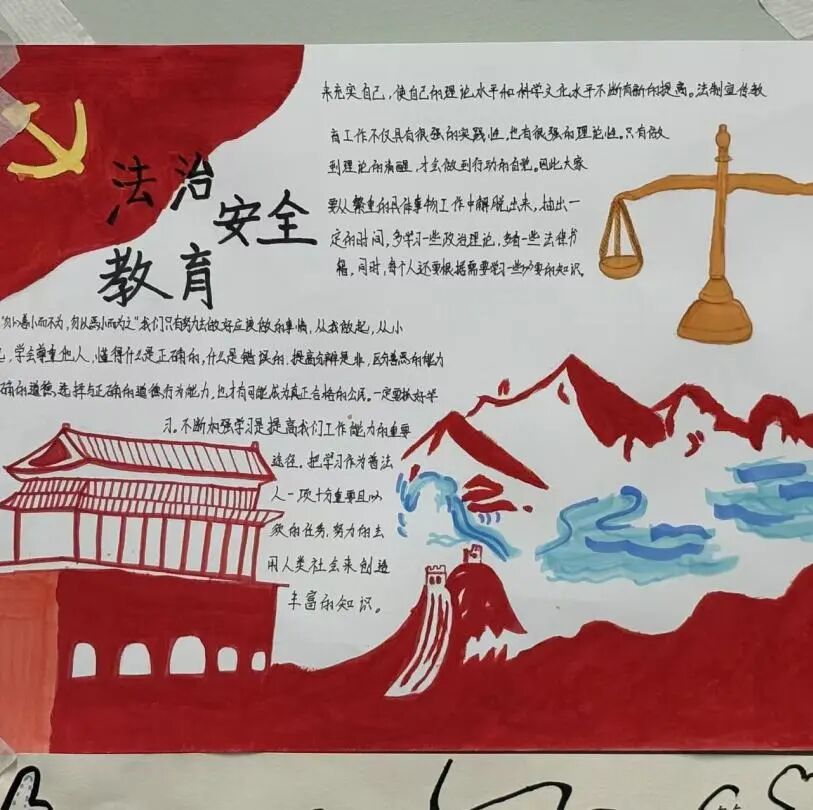 法治
安全
教育
来充实自己，使自己的理论水平和科学文化水平不断有新的提高。法制宣传教
育工作不仅具有很强的实践性，也有很强的理论性。只有做
到理论的清醒，才会做到行动的自觉。因此大家
要从繁重的具体事物工作中解脱出来，抽出一
定的时间，多学习一些政治理论，多看一些法律书
籍，同时，每个人还要根据需要学习一些必要的知识。
"勿以善小而不为，勿以恶小而为之"我们只有努力去做好应该做的事情，从我做起，从小
，学会尊重他人，懂得什么是正确的，什么是错误的，提高分辨是非，区分善恶的能力
确的道德选择与正确的道德行为能力，也才有可能成为真正合格的公民。一定要抓好学
习。不断加强学习是提高我们工作能力的重要
途径。把学习作为普法
人一项十分重要且必
须的任务，努力的去
用人类社会来创造
丰富的知识。